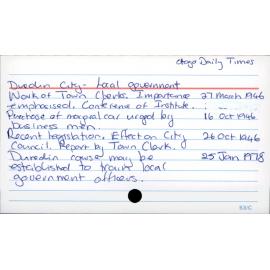 Otago Daily Times
Dunedin City - Local government
Work of Town Clerks. Importance 27 March 1946
emphasised. Conference of Institute.
Purchase of municipal car urged by 16 Oct 1946
business men.
Recent legislation. Effect on City 26 Oct 1946
Council. Report by Town Clerk.
Dunedin course may be 25 Jan 1978
established to train local
government officers.